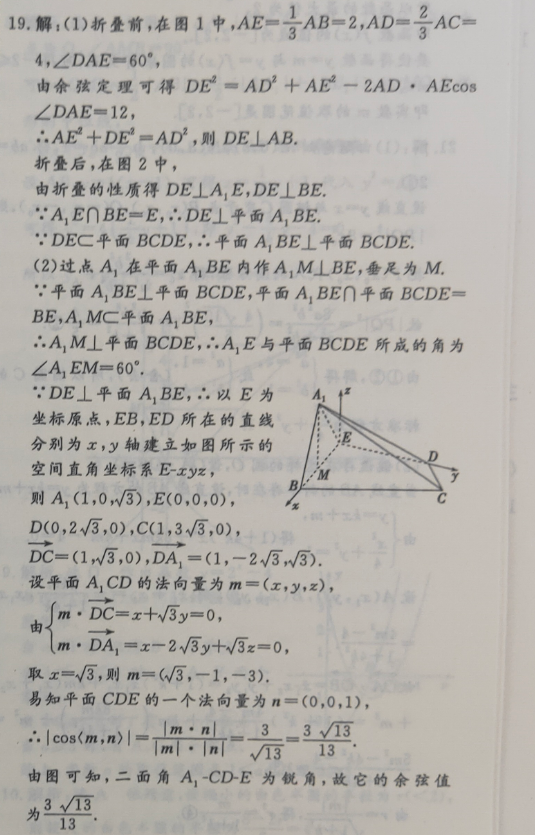 19.解:(1)折叠前,在图1中,AE=\frac{1}{3}AB=2,AD=\frac{2}{3}AC=
4,∠DAE=60°,
由余弦定理可得 DE²=AD²+AE²-2AD·AEcos
∠DAE=12,
∴AE²+DE²=AD²,则 DE⊥AB.
折叠后,在图2中,
由折叠的性质得 DE⊥A₁E,DE⊥BE.
∵A₁E∩BE=E,∴DE⊥平面 A₁BE.
∵DE⊂平面 BCDE,∴平面 A₁BE⊥平面 BCDE.
(2)过点 A₁ 在平面 A₁BE 内作 A₁M⊥BE,垂足为 M.
∵平面 A₁BE⊥平面 BCDE,平面 A₁BE∩平面 BCDE=
BE,A₁M⊂平面 A₁BE,
∴A₁M⊥平面 BCDE,∴A₁E 与平面 BCDE 所成的角为
∠A₁EM=60°.
∵DE⊥平面 A₁BE,∴以 E 为
坐标原点,EB,ED 所在的直线
分别为 x,y 轴建立如图所示的
空间直角坐标系 E-xyz,
则 A₁(1,0,√3),E(0,0,0),
D(0,2√3,0),C(1,3√3,0),
\overrightarrow{DC}=(1,√3,0),\overrightarrow{DA₁}=(1,-2√3,√3).
设平面 A₁CD 的法向量为 m=(x,y,z),
由{m·\overrightarrow{DC}=x+√3y=0,
m·\overrightarrow{DA₁}=x-2√3y+√3z=0,
取 x=√3,则 m=(√3,-1,-3).
易知平面 CDE 的一个法向量为 n=(0,0,1),
∴|cos⟨m,n⟩|=\frac{|m·n|}{|m|·|n|}=\frac{3}{√13}=\frac{3√13}{13}.
由图可知,二面角 A₁-CD-E 为锐角,故它的余弦值
为\frac{3√13}{13}.
A₁
z
E
D
y
M
B
x
C